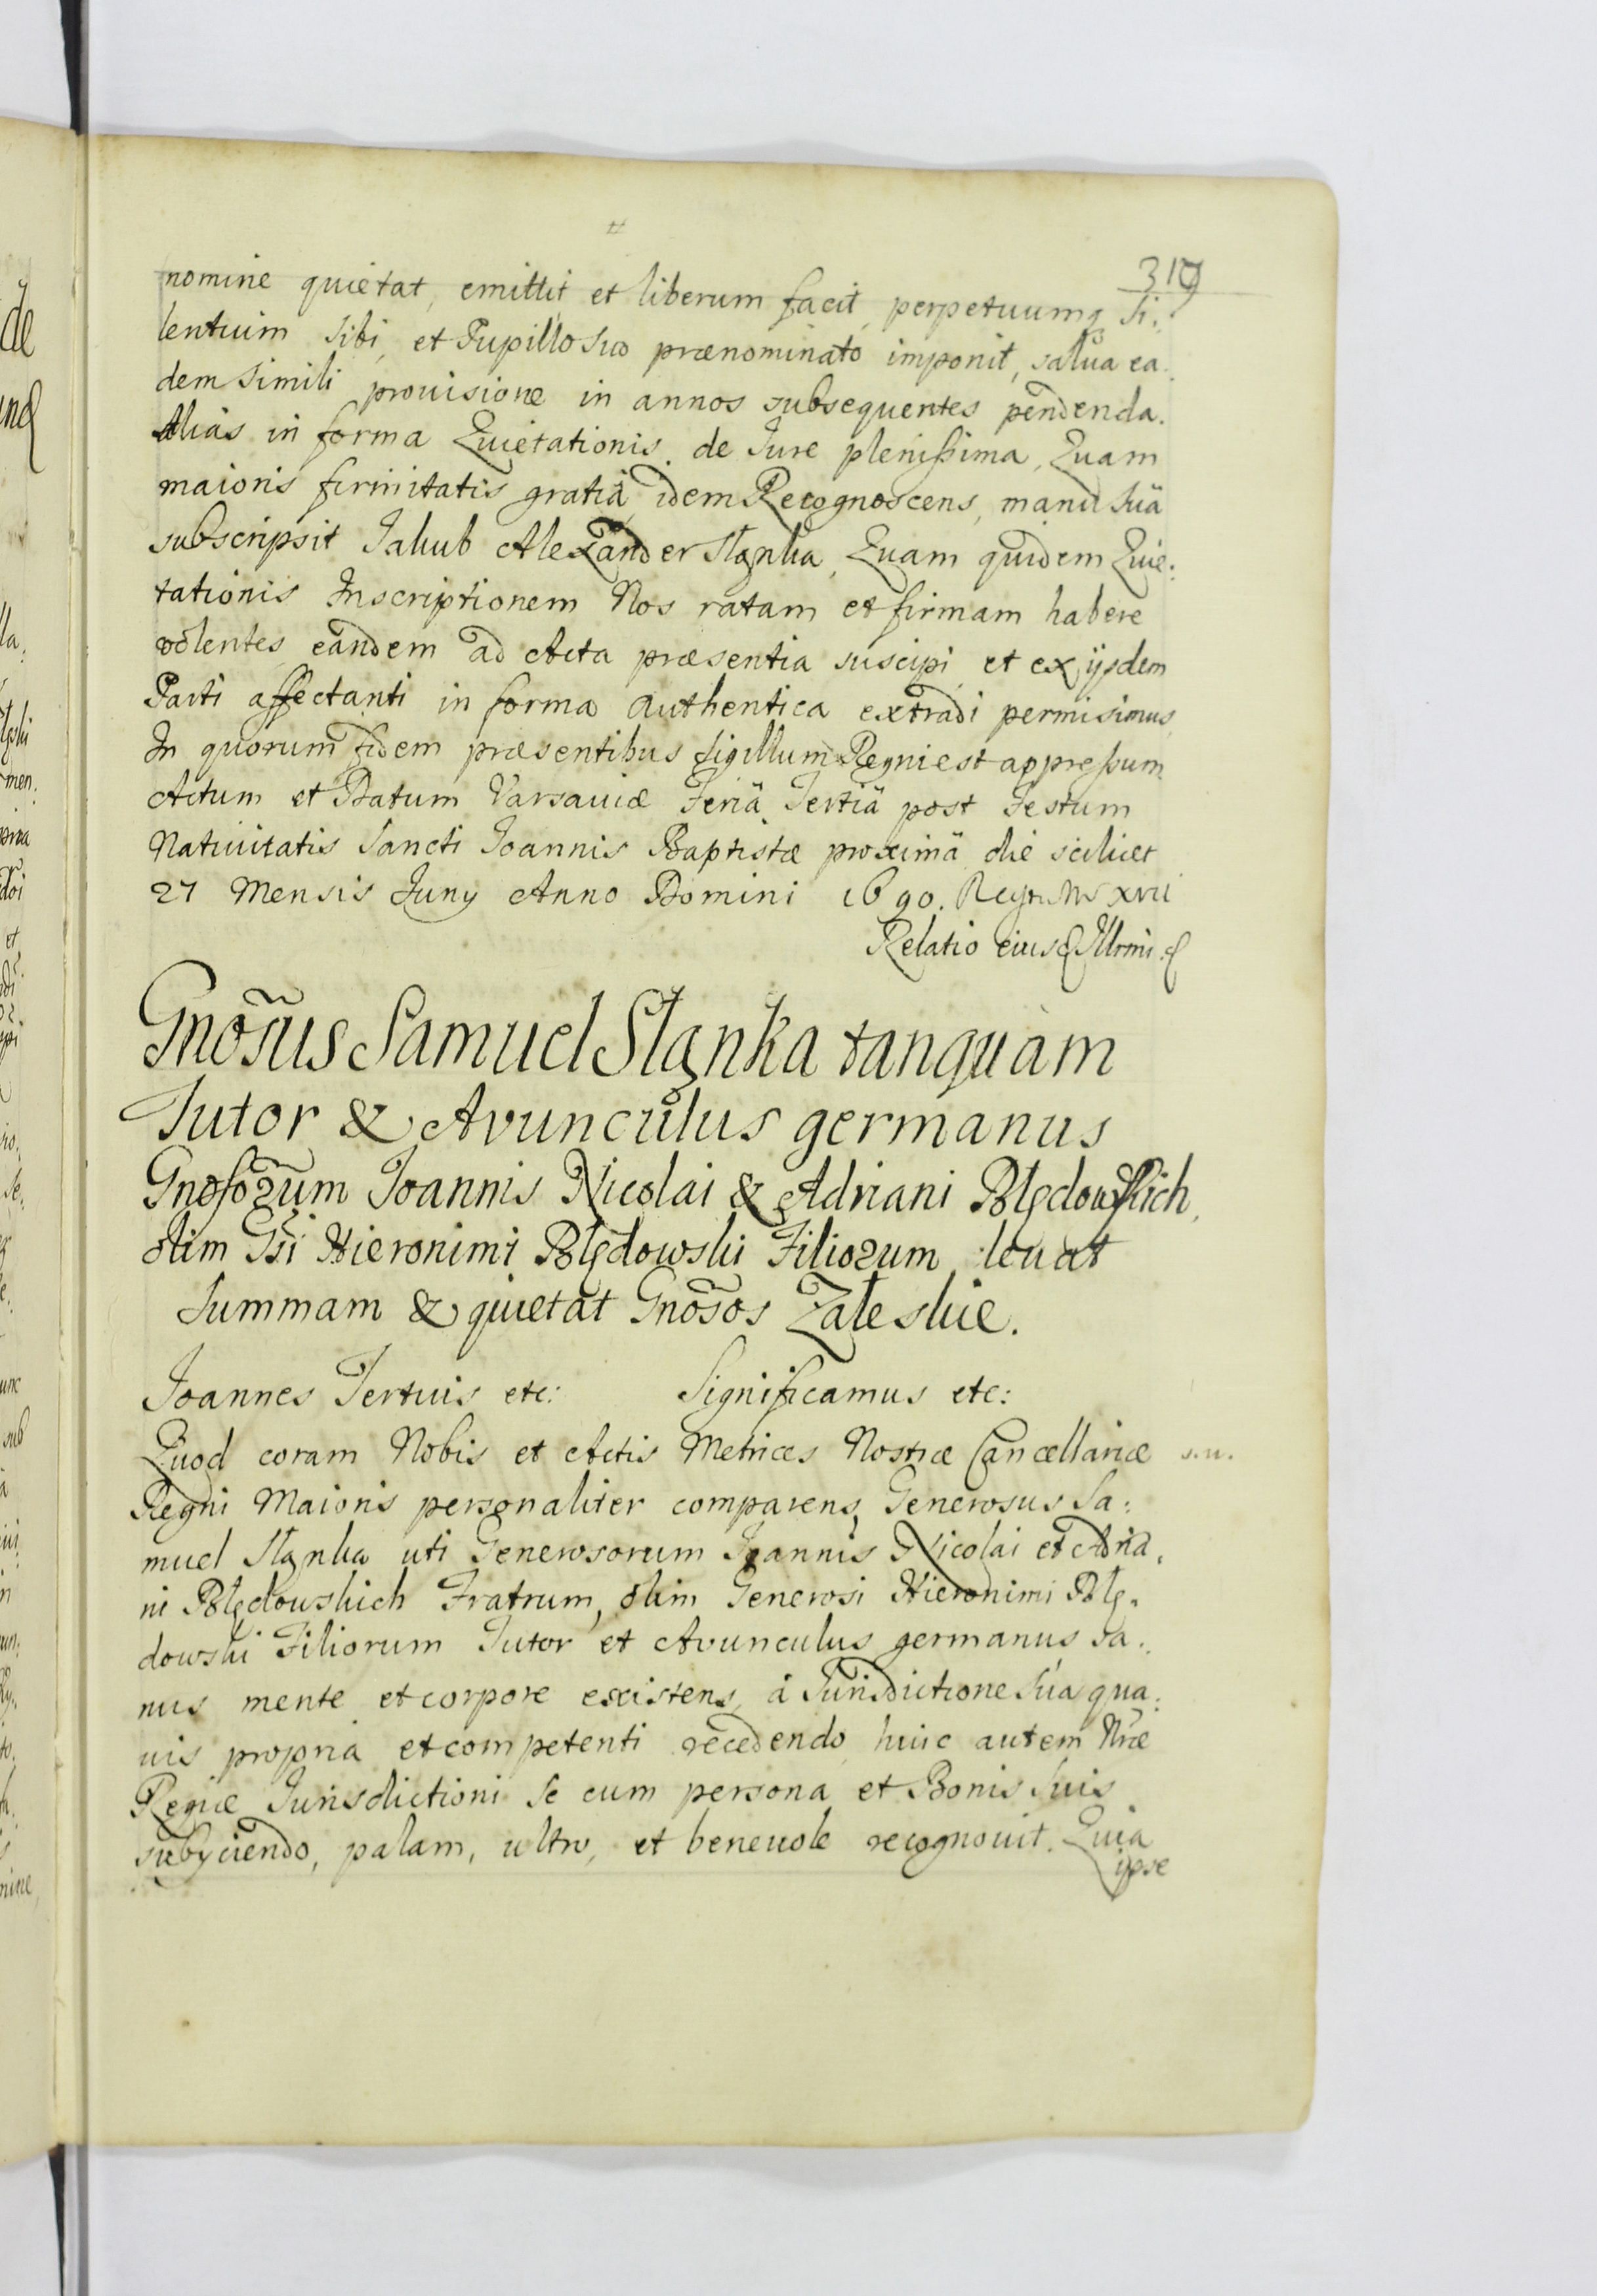 319
nomine quietat, emittit et liberum facit, perpetuumq Si:
lentium Sibi, et Pupillo Suo prænominato imponit, salua ea:
dem Simili prouisione in annos subsequentes pendenda.
Alias in forma Quietationis de Iure plenissima, Quam
maioris firmitatis gratiâ idem Recognoscens, manu Suâ
subscripsit Jakub Alexander Słąnka, Quam quidem Quie:
tationis Inscriptionem Nos ratam et firmam habere
volentes, eandem ad Acta præsentia suscipi, et ex ijsdem
Parti affectanti in forma authentica extradi permisimus,
In quorum fidem præsentibus Sigillum Regni est appressum
Actum et Datum Varsauiæ Feriâ Tertiâ post Festum
Natiuitatis Sancti Ioannis Baptistæ proximâ die scilicet
27 Mensis Juny Anno Domini 1690. Regn: Nri XVII
Relatio eiusd Illrmi &
Gnõsus Samuel Słąnka tanquam
Tutor & Avunculus germanus
Gnosorum Ioannis Nicolai & Adriani Błędowskich,
olim Gsi Hieronimi Błędowski Filiorum leuat
Summam & quietat Gnõsos Załeskie.
Ioannes Tertius etc: Significamus etc:
Quod coram Nobis et Actis Metrices Nostræ Cancellariæ
Regni Maioris personaliter comparens, Generosus Sa:
muel Słąnka uti Generosorum Ioannis Nicolai et Adria:
ni Błędowskich Fratrum, olim Generosi Hieronimi Błę:
dowski Filiorum Tutor et Avunculus germanus, sa:
nus mente et corpore existens, à Iurisdictione Sua qua:
uis propria et competenti recedendo, huic autem Nræ
Regiæ Iurisdictioni Se cum persona et Bonis Suis
subyciendo, palam, ultro, et beneuole recognouit. Quia
ipse